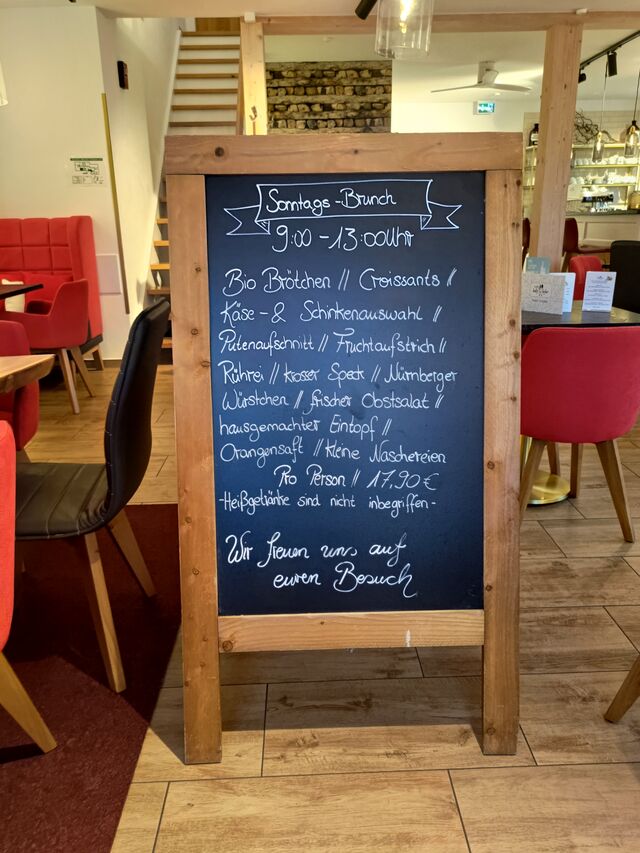 Sonntags-Brunch
9:00 - 13:00 Uhr
Bio Brötchen // Croissants //
Käse- & Schinkenauswahl //
Putenaufschnitt // Fruchtaufstrich //
Rührei // krosser Speck // Nürnberger
Würstchen // frischer Obstsalat //
hausgemachter Eintopf //
Orangensaft // kleine Naschereien
Pro Person // 17,90 €
-Heißgetränke sind nicht inbegriffen-
Wir freuen uns auf
euren Besuch